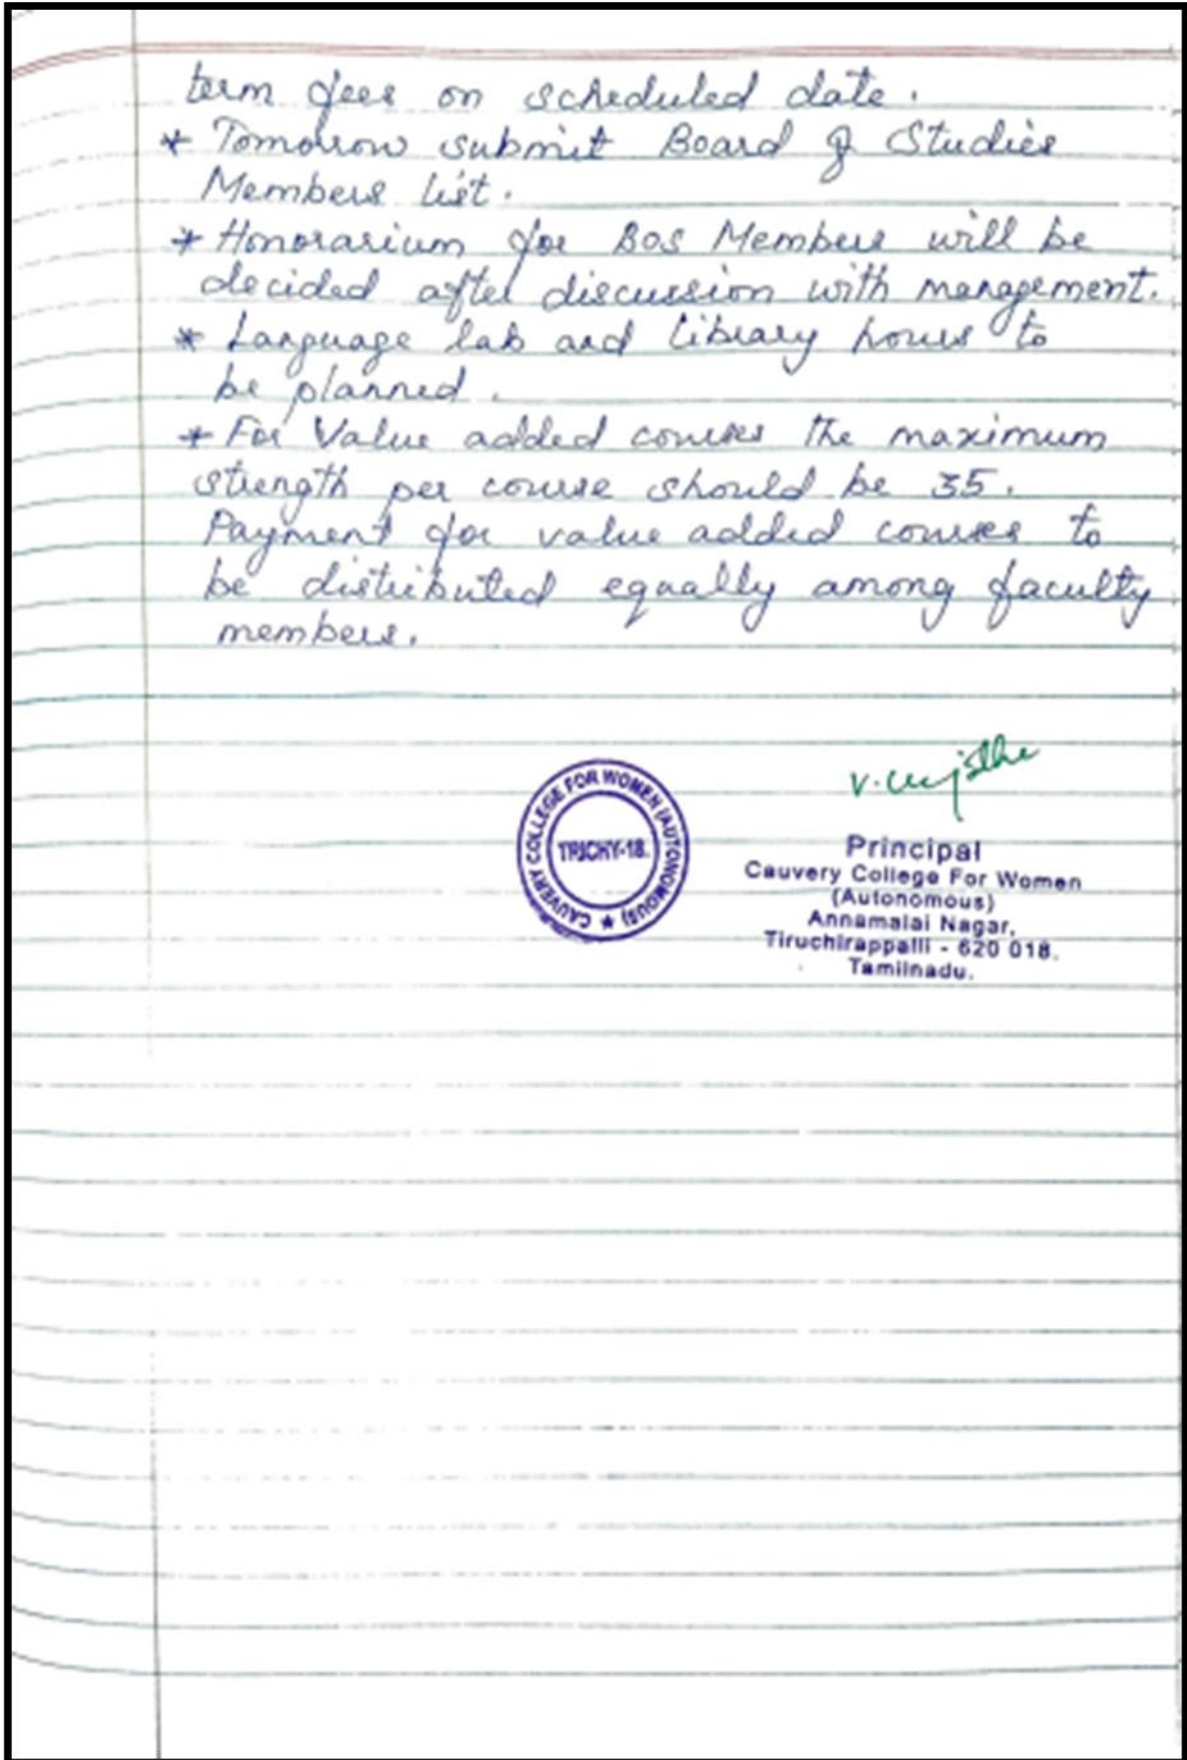 term fees on scheduled date.
* Tomorrow submit Board of Studies
Members list.
* Honorarium for Bos Members will be
decided after discussion with management.
* Language lab and library hours to
be planned.
* For Value added courses the maximum
strength per course should be 35.
Payment for value added courses to
be distributed equally among faculty
members.
CAUVERY COLLEGE FOR WOMEN (AUTONOMOUS) ★
TRICHY-18.
Principal
Cauvery College For Women
(Autonomous)
Annamalai Nagar,
Tiruchirappalli - 620 018.
Tamilnadu.